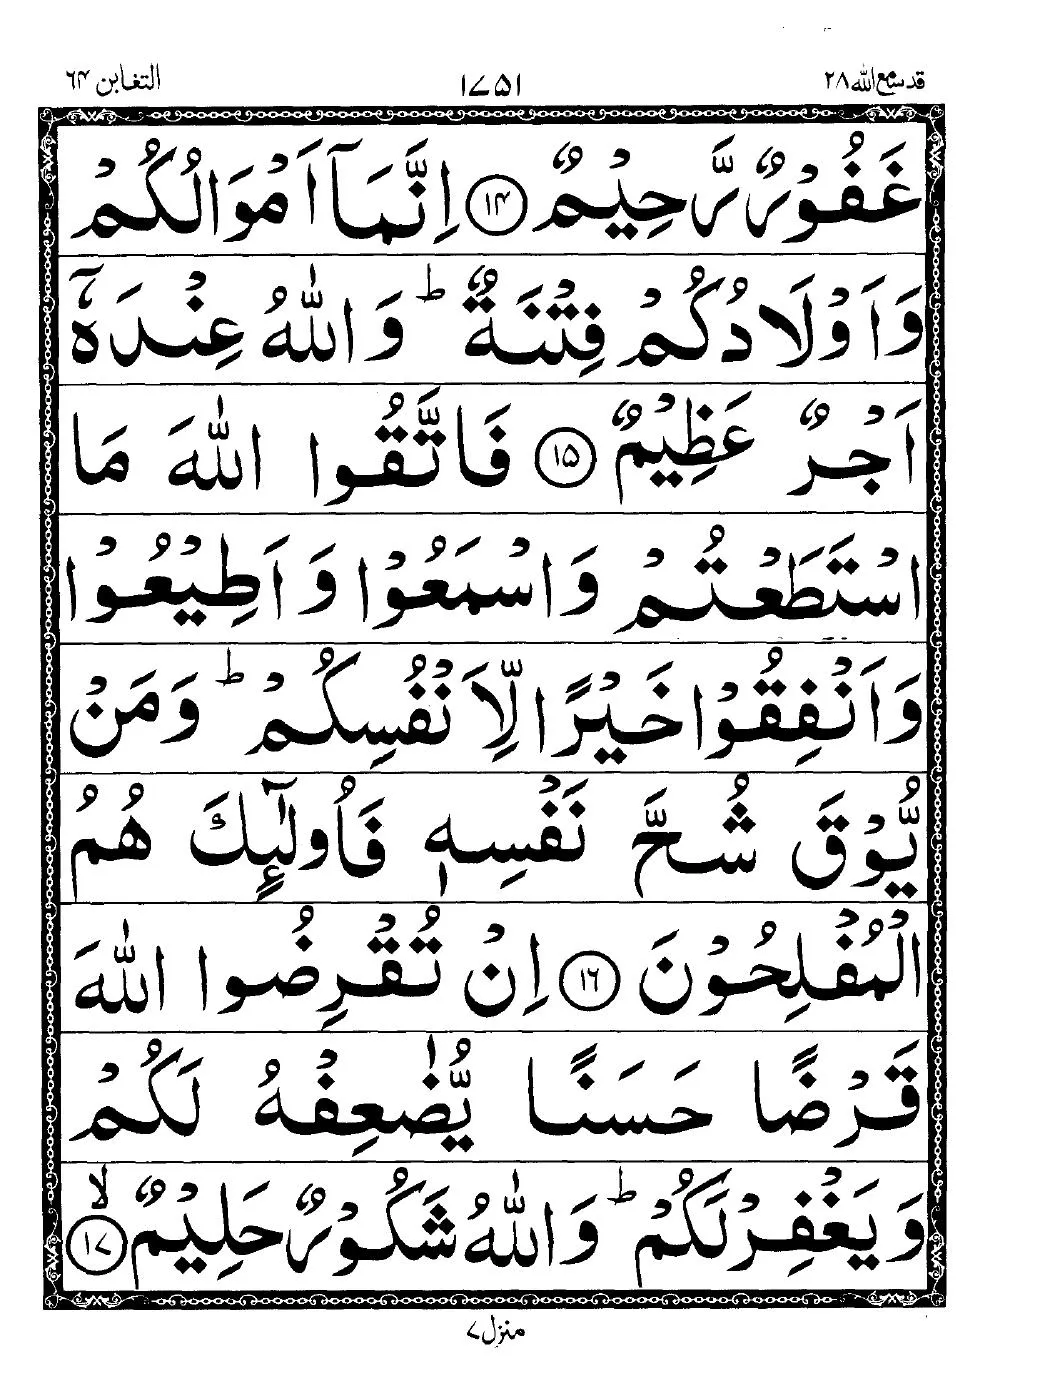 قد سمع الله ۲۸ ۱۷۵۱ التغابن ۶۴
غَفُوْرٌ رَّحِیْمٌ ۱۴ اِنَّمَاۤ اَمْوَالُكُمْ
وَاَوْلَادُكُمْ فِتْنَةٌ ؕ وَاللّٰهُ عِنْدَهٗۤ
اَجْرٌ عَظِیْمٌ ۱۵ فَاتَّقُوا اللّٰهَ مَا
اسْتَطَعْتُمْ وَاسْمَعُوْا وَاَطِیْعُوْا
وَاَنْفِقُوْا خَیْرًا لِّاَنْفُسِكُمْ ؕ وَمَنْ
یُّوْقَ شُحَّ نَفْسِهٖ فَاُولٰٓىِٕكَ هُمُ
الْمُفْلِحُوْنَ ۱۶ اِنْ تُقْرِضُوا اللّٰهَ
قَرْضًا حَسَنًا یُّضٰعِفْهُ لَكُمْ
وَیَغْفِرْ لَكُمْ ؕ وَاللّٰهُ شَكُوْرٌ حَلِیْمٌ ۙ ۱۷
منزل ۷